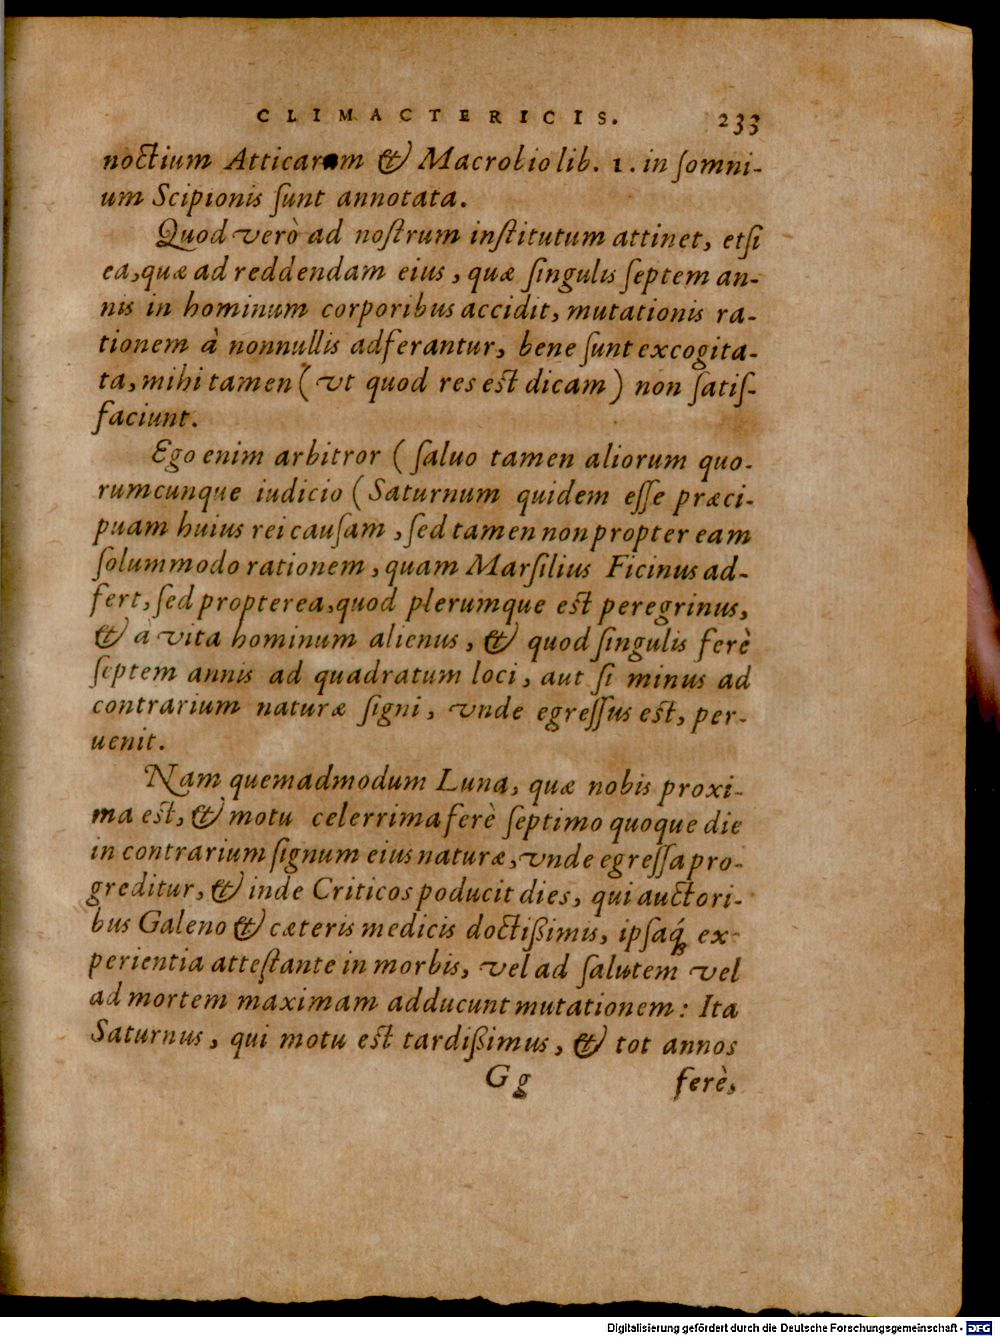 CLIMACTERICIS. 233
noctium Atticarum & Macrobio lib. 1. in ſomni-
um Scipionis ſunt annotata.
Quod verò ad noſtrum inſtitutum attinet, etſi
ea, quæ ad reddendam eius, quæ ſingulis ſeptem an-
nis in hominum corporibus accidit, mutationis ra-
tionem à nonnullis adferantur, bene ſunt excogita-
ta, mihi tamen ( vt quod res est dicam ) non ſatiſ-
faciunt.
Ego enim arbitror ( ſaluo tamen aliorum quo-
rumcunque iudicio ( Saturnum quidem eſſe præci-
puam huius rei cauſam, ſed tamen non propter eam
ſolummodo rationem, quam Marſilius Ficinus ad-
fert, ſed propterea, quod plerumque est peregrinus,
& à vita hominum alienus, & quod ſingulis ferè
ſeptem annis ad quadratum loci, aut ſi minus ad
contrarium naturæ ſigni, vnde egreſſus est, per-
uenit.
Nam quemadmodum Luna, quæ nobis proxi-
ma est, & motu celerrima ferè ſeptimo quoque die
in contrarium ſignum eius naturæ, vnde egreſſa pro-
greditur, & inde Criticos poducit dies, qui auctori-
bus Galeno & cæteris medicis doctißimis, ipſaq́; ex-
perientia atteſtante in morbis, vel ad ſalutem vel
ad mortem maximam adducunt mutationem: Ita
Saturnus, qui motu est tardißimus, & tot annos
Gg ferè,
Digitalisierung gefördert durch die Deutsche Forschungsgemeinschaft - DFG